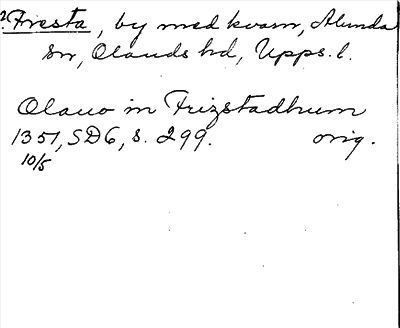 2. Fresta, by med kvarn, Alunda
sn, Olands hd, Upps. l.
Olauo in Frizstadhum
1351, SD6, s. 299. orig.
10/5